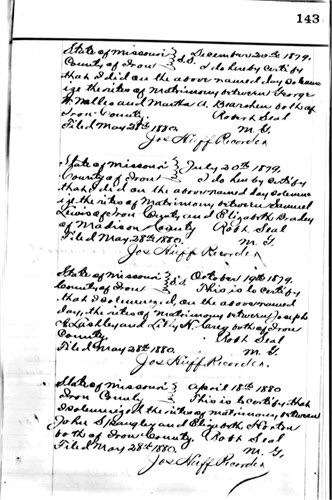 143
State of Missouri } December 20th 1879.
County of Iron } S.S. I do hereby certify
that I did on the above named day solemn
ize the rites of matrimony between George
W. and Martha A. both of
Iron County. Robt Seal
Filed May 28th 1880. M.G.
Jos Huff Recorder
State of Missouri } July 20th 1879.
County of Iron } I do hereby certify
that I did on the above named day solemn
ize the rites of Matrimony between Samuel
Lewis of Iron County and Elizabeth
of Madison County Robt Seal
Filed May 28th 1880. M.G.
Jos Huff Recorder
State of Missouri } October 19th 1879.
County of Iron } S.S. This is to certify
that I solemnized, on the above named
day, the rites of matrimony between Joseph
C. Lashley and Lily H. both of Iron
County. Robt Seal
Filed May 28th 1880. M.G.
Jos Huff Recorder.
State of Missouri } April 18th 1880
Iron County } This is to certify that
I solemnized the rites of matrimony between
John S. and Elizabeth
both of Iron County. Robt Seal
Filed May 28th 1880. M.G.
Jos Huff Recorder